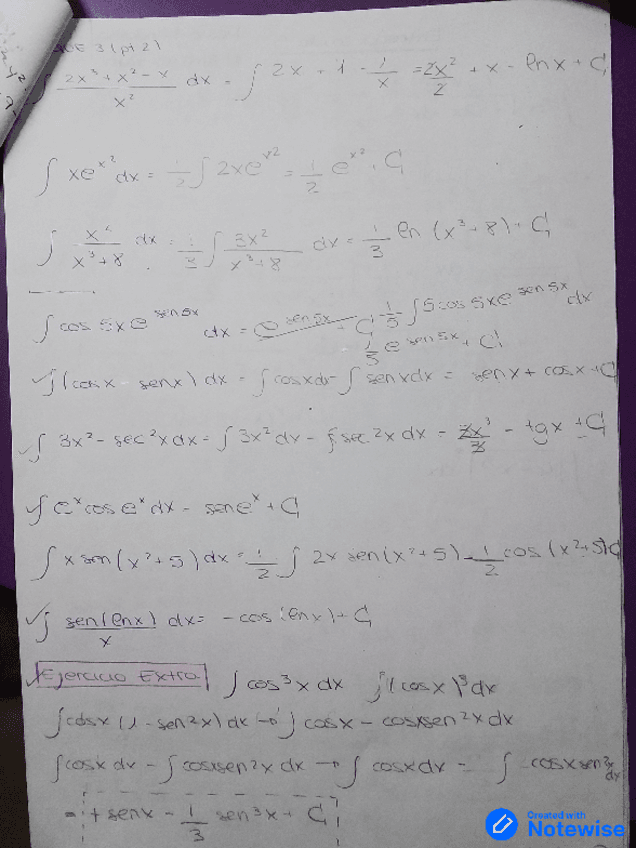 3 (pt 2)
∫ (2x³ + x² - x)/x² dx = ∫ 2x + 1 - 1/x = 2x²/2 + x - lnx + C
∫ xe^(x²) dx = 1/2 ∫ 2xe^(x²) = 1/2 e^(x²) + C
∫ x²/(x³+8) dx = 1/3 ∫ 3x²/(x³+8) dx = 1/3 ln (x³+8) + C
∫ cos 5x e^(sen 5x) dx = e^(sen 5x) + C 1/5 ∫ 5 cos 5x e^(sen 5x) dx
1/5 e^(sen 5x) + C
✓ ∫ (cosx - senx) dx = ∫ cosxdx - ∫ senxdx = senx + cosx + C
✓ ∫ 3x² - sec²x dx = ∫ 3x² dx - ∫ sec²x dx = 3x³/3 - tgx + C
✓ ∫ e^x cos e^x dx = sen e^x + C
∫ x sen (x²+5) dx = 1/2 ∫ 2x sen(x²+5) = -1/2 cos (x²+5) + C
✓ ∫ sen(lnx)/x dx = -cos (lnx) + C
✓ Ejercicio Extra ∫ cos³x dx ∫ (cosx)³ dx
∫ cosx (1 - sen²x) dx → ∫ cosx - cosxsen²x dx
∫ cosx dx - ∫ cosxsen²x dx → ∫ cosxdx - ∫ -cosxsen²x dx
= + senx - 1/3 sen³x + C
Created with
Notewise